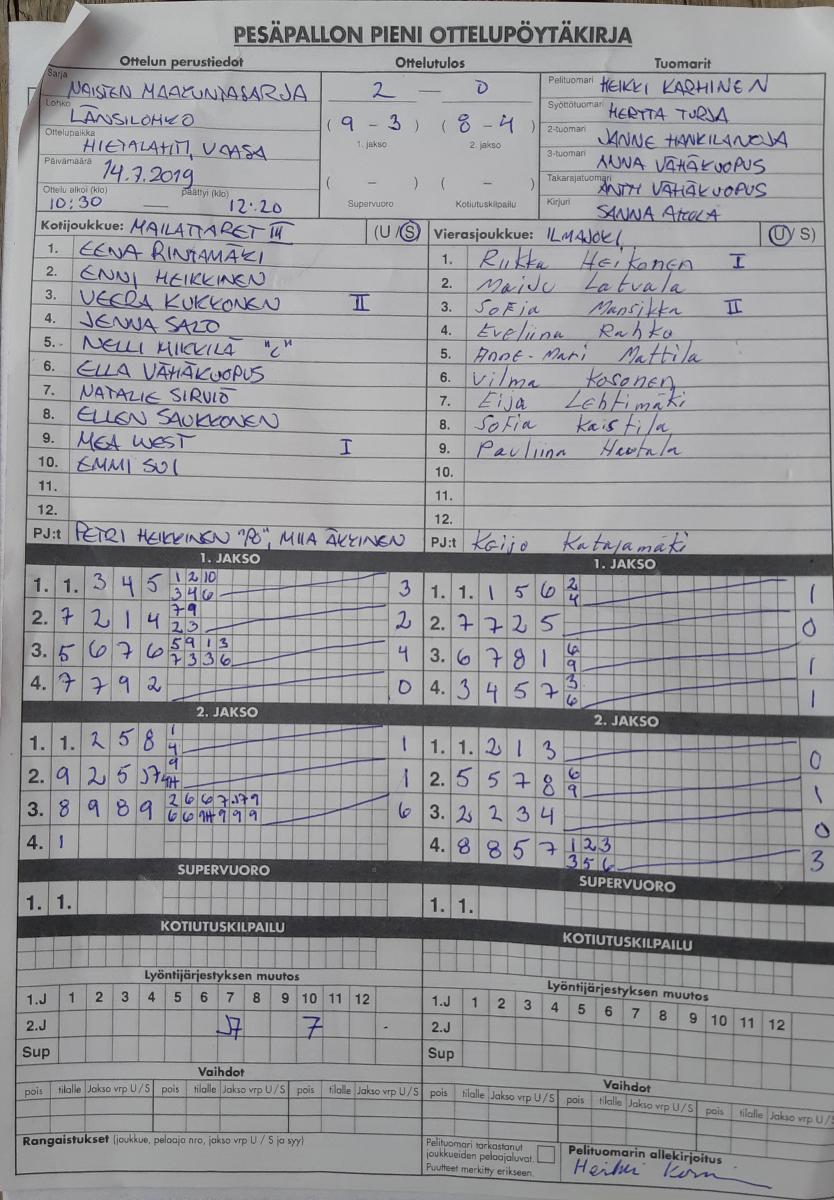 PESÄPALLON PIENI OTTELUPÖYTÄKIRJA
Ottelun perustiedot
Sarja NAISTEN MAAKUNTASARJA
Lohko LÄNSILOHKO
Ottelupaikka HIETALAHTI, VAASA
Päivämäärä 14.7.2019
Ottelu alkoi (klo) päättyi (klo)
10:30 — 12:20
Ottelutulos
2 — 0
(9 - 3) (8 - 4)
1. jakso 2. jakso
( - ) ( - )
Supervuoro Kotiutuskilpailu
Tuomarit
Pelituomari HEIKKI KARHINEN
Syöttötuomari HERTTA TURJA
2-tuomari JANNE HANKILANOJA
3-tuomari ANNA VÄHÄKUOPUS
Takarajatuomari ANTTI VÄHÄKUOPUS
Kirjuri SANNA
Kotijoukkue: MAILATTARET III (U/S)
1. EENA RINTAMÄKI
2. ENNI HEIKKINEN
3. VEERA KUKKONEN II
4. JENNA SALO
5. NELLI MIKKILÄ "C"
6. ELLA VÄHÄKUOPUS
7. NATALIE SIRVIÖ
8. ELLEN SAUKKONEN
9. MEA WEST I
10. EMMI SUI
11.
12.
PJ:t PETRI HEIKKINEN "PO", MIIA
Vierasjoukkue: ILMAJOKI (U/S)
1. Riikka Heikonen I
2. Maiju Latvala
3. Sofia Mansikka II
4. Eveliina Rahko
5. Anne-Mari Mattila
6. Vilma Kosonen
7. Eija Lehtimäki
8. Sofia Kaistila
9. Pauliina Hautala
10.
11.
12.
PJ:t Keijo Katajamäki
1. JAKSO
1. 1. 3 4 5 1 2 10 3
3 4 6
2. 7 2 1 4 7 9 2
2 3
3. 5 6 7 6 5 9 1 3 4
7 3 3 6
4. 7 7 9 2 0
2. JAKSO
1. 1. 2 5 8 1 1
4
2. 9 2 5 J7 9 1
4
3. 8 9 8 9 2 6 6 7 J7 9 6
6 6 9 9 9
4. 1
SUPERVUORO
1. 1.
KOTIUTUSKILPAILU
Lyöntijärjestyksen muutos
1.J 1 2 3 4 5 6 7 8 9 10 11 12
2.J J7 7
Sup
Vaihdot
pois tilalle Jakso vrp U/S pois tilalle Jakso vrp U/S pois tilalle Jakso vrp U/S
Rangaistukset (joukkue, pelaaja nro, jakso vrp U / S ja syy)
1. JAKSO
1. 1. 1 5 6 2 1
4
2. 7 7 2 5 0
3. 6 7 8 1 6 1
9
4. 3 4 5 7 3 1
6
2. JAKSO
1. 1. 2 1 3 0
2. 5 5 7 8 6 1
9
3. 2 2 3 4 0
4. 8 8 5 7 1 2 3 3
3 5 6
SUPERVUORO
1. 1.
KOTIUTUSKILPAILU
Lyöntijärjestyksen muutos
1.J 1 2 3 4 5 6 7 8 9 10 11 12
2.J
Sup
Vaihdot
pois tilalle Jakso vrp U/S pois tilalle Jakso vrp U/S pois tilalle Jakso vrp U/S
Pelituomari tarkastanut
joukkueiden pelaajaluvat.
Puutteet merkitty erikseen.
Pelituomarin allekirjoitus
Heikki